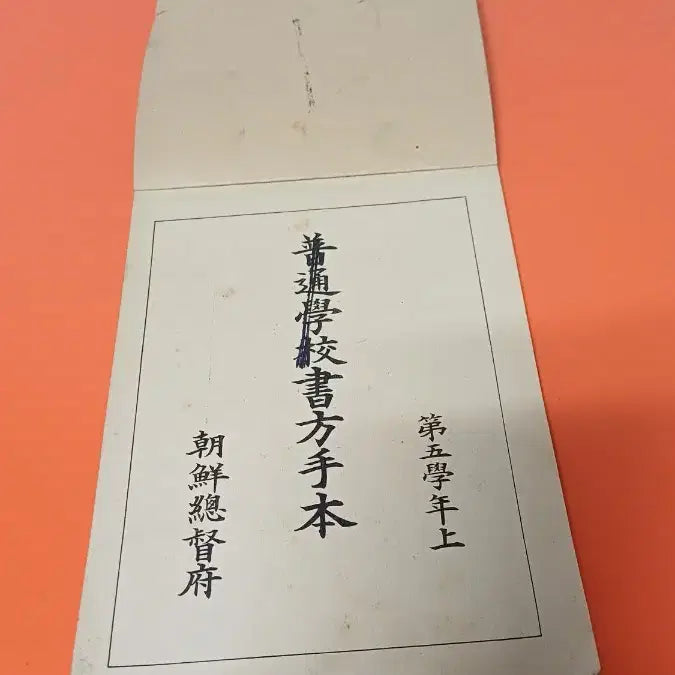 第五學年上
普通學校書方手本
朝鮮總督府